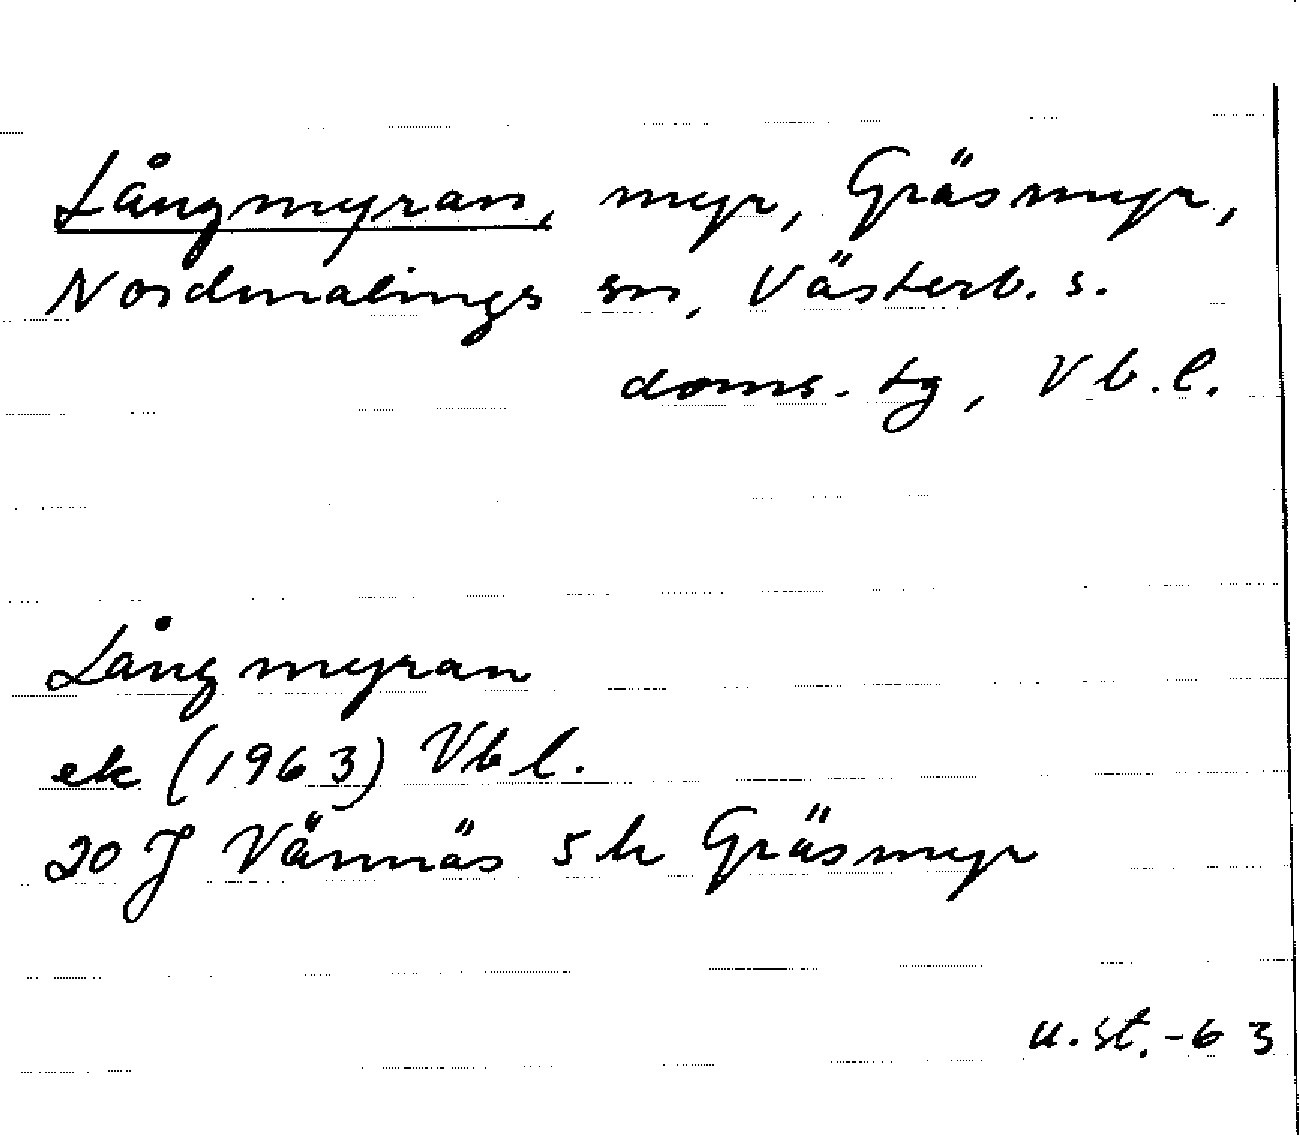 Långmyran, myr, Gräsmyr,
Nordmalings sn, Västerb. s.
doms. tg, Vb.l.
Långmyran
ek (1963) Vb l.
20 J Vännäs 5 h Gräsmyr
u. st. -63